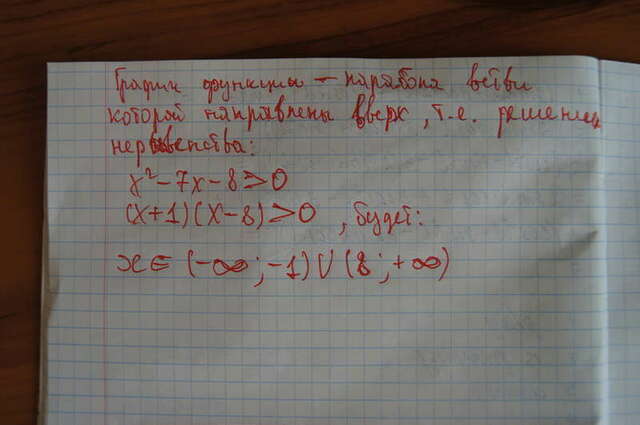 График функции – парабола ветви
которой направлены вверх, т.е. решением
неравенства:
x² - 7x - 8 > 0
(x+1)(x-8) > 0 , будет:
x ∈ (-∞; -1) ∪ (8; +∞)